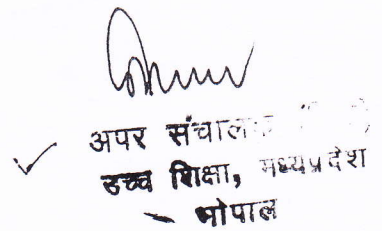 अपर संचालक
उच्च शिक्षा, मध्यप्रदेश
भोपाल